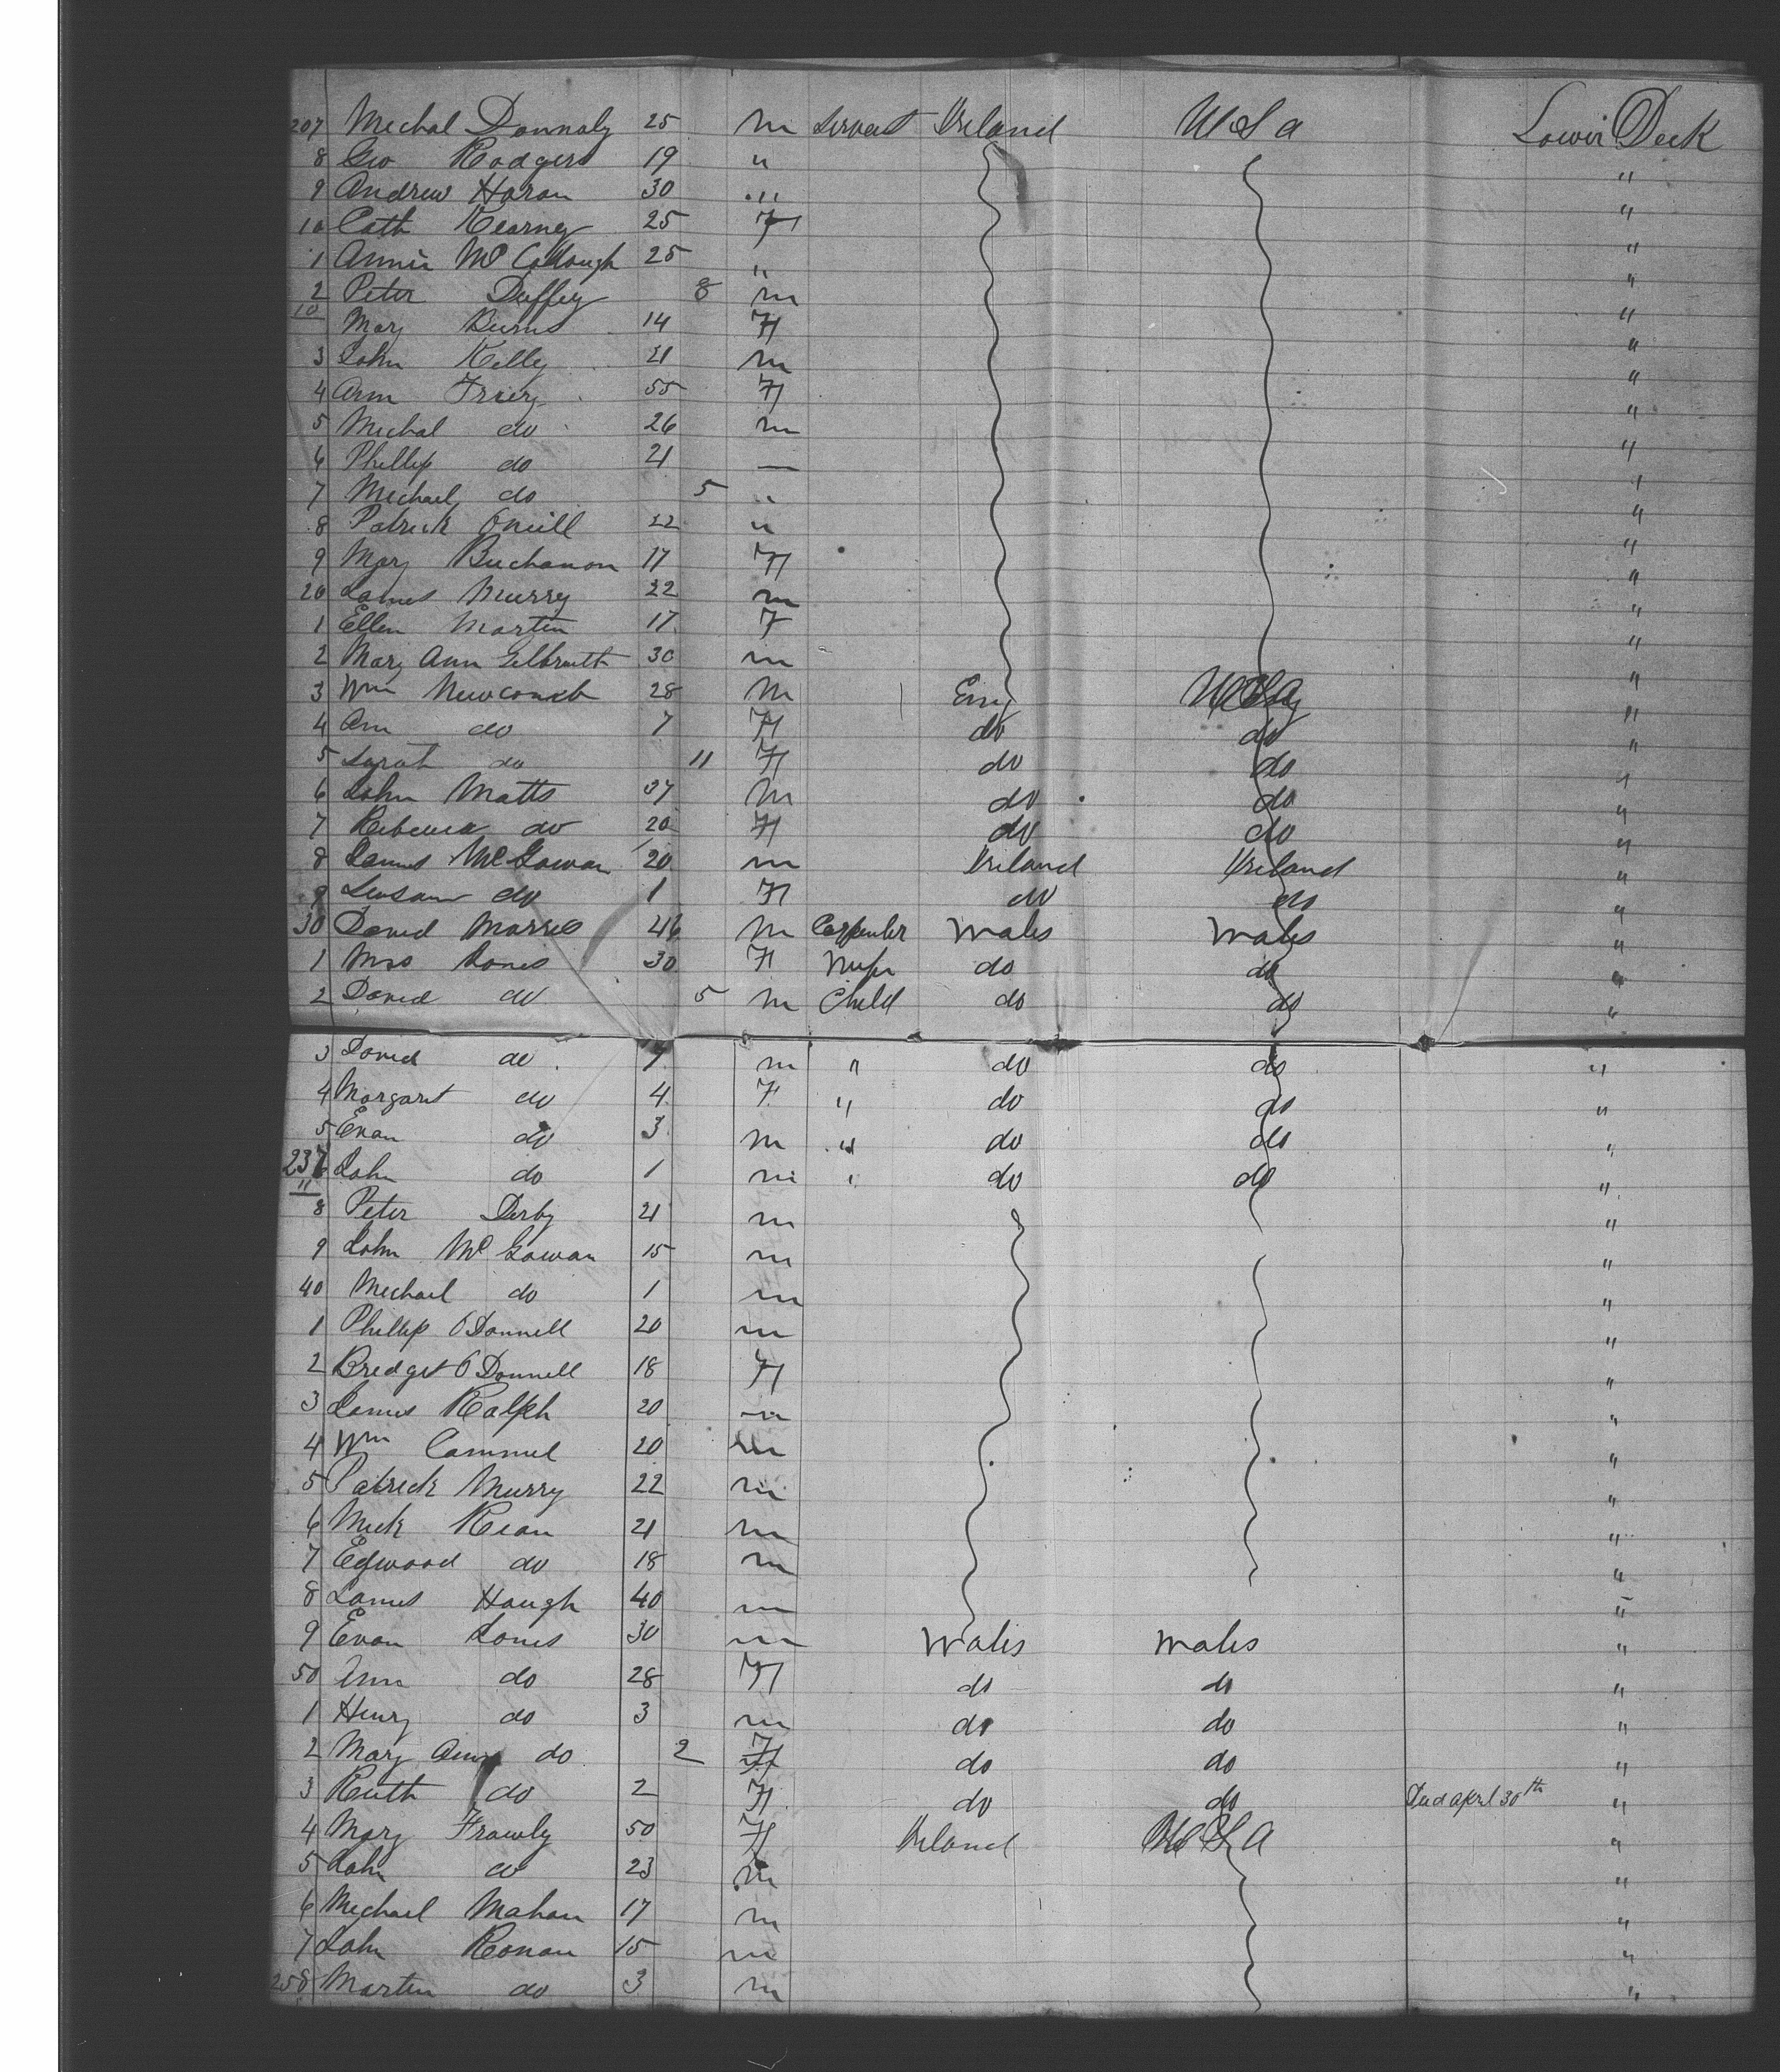 207 Michal Donnaly 25 m Servant Ireland USA Lower Deck
8 Geo Rodgers 19 " "
9 Andrew Haran 30 " "
10 Cath Kearney 25 F "
1 Annie McCollough 25 " "
2 Peter Duffey 8 m "
10 Mary Burns 14 F "
3 John Kelly 21 m "
4 Ann Friery 55 F "
5 Michal do 26 m "
6 Phillip do 21 — "
7 Michael do 5 " "
8 Patrick Oneill 22 " "
9 Mary Buchanon 17 F "
20 James Murry 22 m "
1 Ellen Martin 17 F "
2 Mary Ann Gilbraith 30 m "
3 Wm Newcomb 28 m Eng USA "
4 Ann do 7 F do do "
5 Sarah do 11 F do do "
6 John Matts 37 m do do "
7 Rebecca do 20 F do do "
8 James McGowan 20 m Ireland Ireland "
9 Susan do 1 F do do "
30 David Morris 46 m Carpenter Wales Wales "
1 Mrs Jones 30 F Wife do do "
2 David do 5 m Child do do "
3 David do 7 m " do do "
4 Margaret do 4 F " do do "
5 Evan do 3 m " do do "
237 John do 1 m " do do "
11
8 Peter Derby 21 m "
9 John McGowan 15 m "
40 Michael do 1 m "
1 Phillip ODonnell 20 m "
2 Bredget ODonnell 18 F "
3 James Ralph 20 m "
4 Wm Cammel 20 m "
5 Patrick Murry 22 m "
6 Mick Rean 21 m "
7 Edwood do 18 m "
8 James Haugh 40 m "
9 Evan Jones 30 m Wales Wales "
50 Ann do 28 F do do "
1 Henry do 3 m do do "
2 Mary Ann do 2 F do do "
3 Ruth do 2 F do do Died April 30th "
4 Mary Frawly 50 F Ireland USA "
5 John do 23 m "
6 Michael Mahan 17 m "
7 John Ronan 15 m "
258 Martin do 3 m "